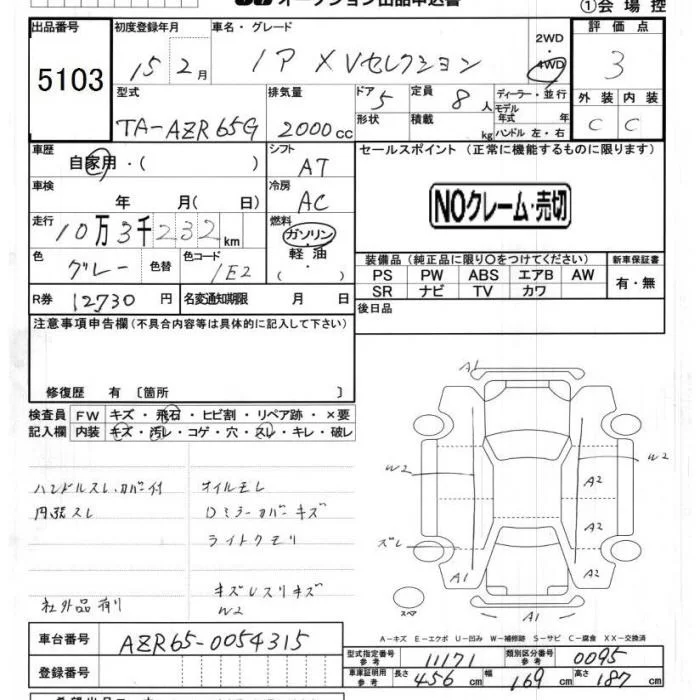 オークション出品申込書
①会場控
出品番号 初度登録年月 車名・グレード 2WD・4WD 評価点
5103 15年2月 IP XVセレクション 3
型式 排気量 ドア 5 定員 8人 ディーラー・並行 外装 内装
TA-AZR65G 2000cc 形状 積載 kg モデル年式 年 C C
ハンドル 左・右
車歴 シフト セールスポイント(正常に機能するものに限ります)
自家用・( ) AT
車検 冷房 NOクレーム・売切
年 月( 日) AC
走行 燃料
10万3千232km ガソリン
軽油
( )
色 色替 色コード 装備品(純正品に限り○をつけてください) 新車保証書
グレー 1E2 PS PW ABS エアB AW 有・無
SR ナビ TV カワ
R券 12730円 名変通知期限 月 日 後日品
注意事項申告欄(不具合内容等は具体的に記入して下さい)
修復歴 有 〔箇所 〕
検査員 FW キズ・飛石・ヒビ割・リペア跡・×要
記入欄 内装 キズ・汚レ・コゲ・穴・スレ・キレ・破レ
ハンドルスレ・カバー付 オイルモレ
内張スレ Dミラーカバーキズ
ライトクモリ
社外品有リ キズレスリキズ
W2
A1
W2 W2
A2
A2
ズレ
A1 A2
スペア A1
A-キズ E-エクボ U-凹み W-補修跡 S-サビ C-腐食 XX-交換済
車台番号 AZR65-0054315
型式指定番号参考 11171 類別区分番号参考 0095
登録番号 車庫証明用参考 長さ 456cm 幅 169cm 高さ 187cm